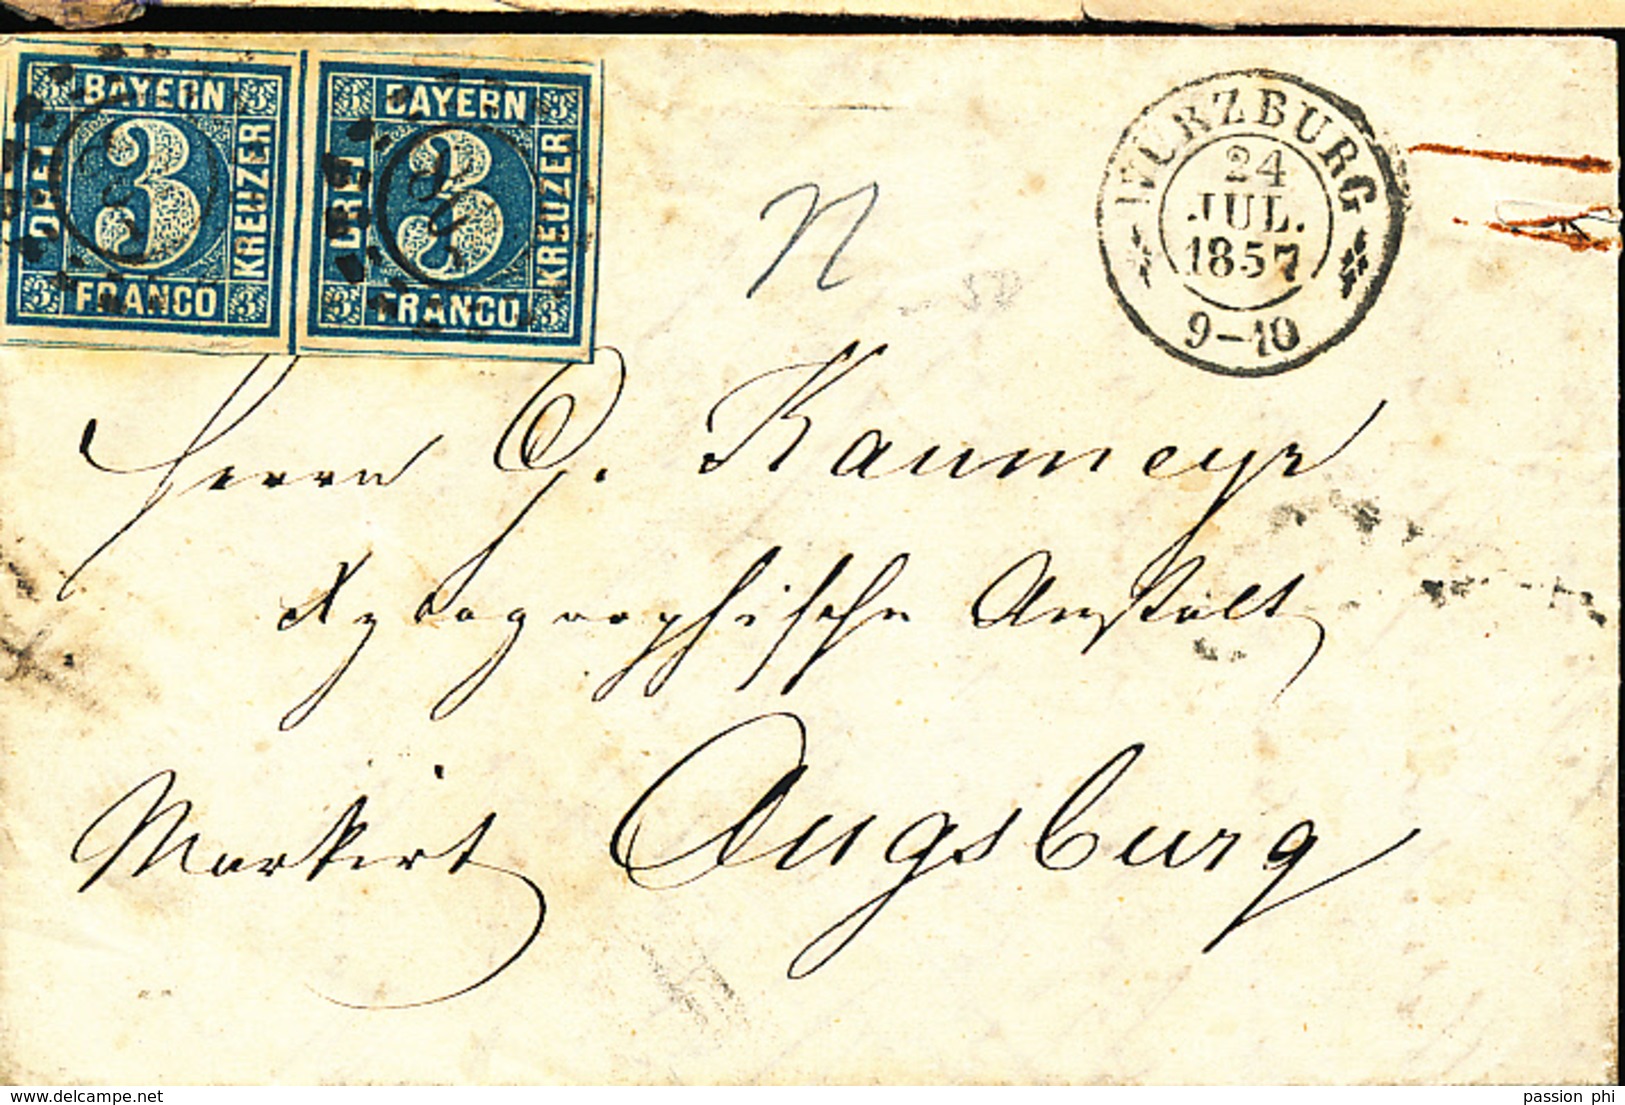 BAYERN
DREI
3
KREUZER
FRANCO
BAYERN
DREI
3
KREUZER
FRANCO
WÜRZBURG
24
JUL.
1857
9-10
Herrn C. Kaumeyr
Xylographische Anstalt
Markirt Augsburg
delcampe.net
passion phi